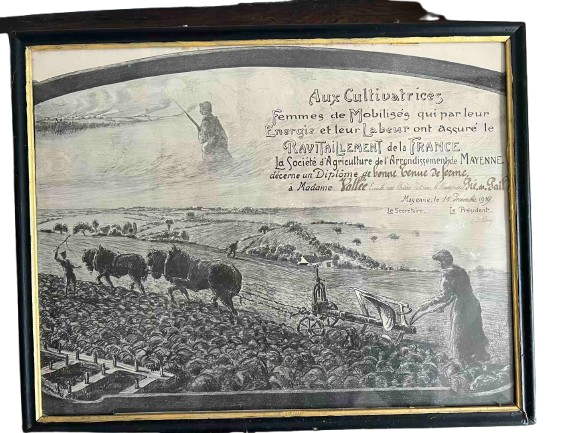 Aux Cultivatrices
Femmes de Mobilisés qui par leur
Énergie et leur Labeur ont assuré le
RAVITAILLEMENT de la FRANCE
La Société d'Agriculture de l'Arrondissement de MAYENNE
décerne un Diplôme de bonne tenue de ferme,
à Madame Vallée Pré en Pail
Mayenne, le 19
Le Secrétaire, Le Président,